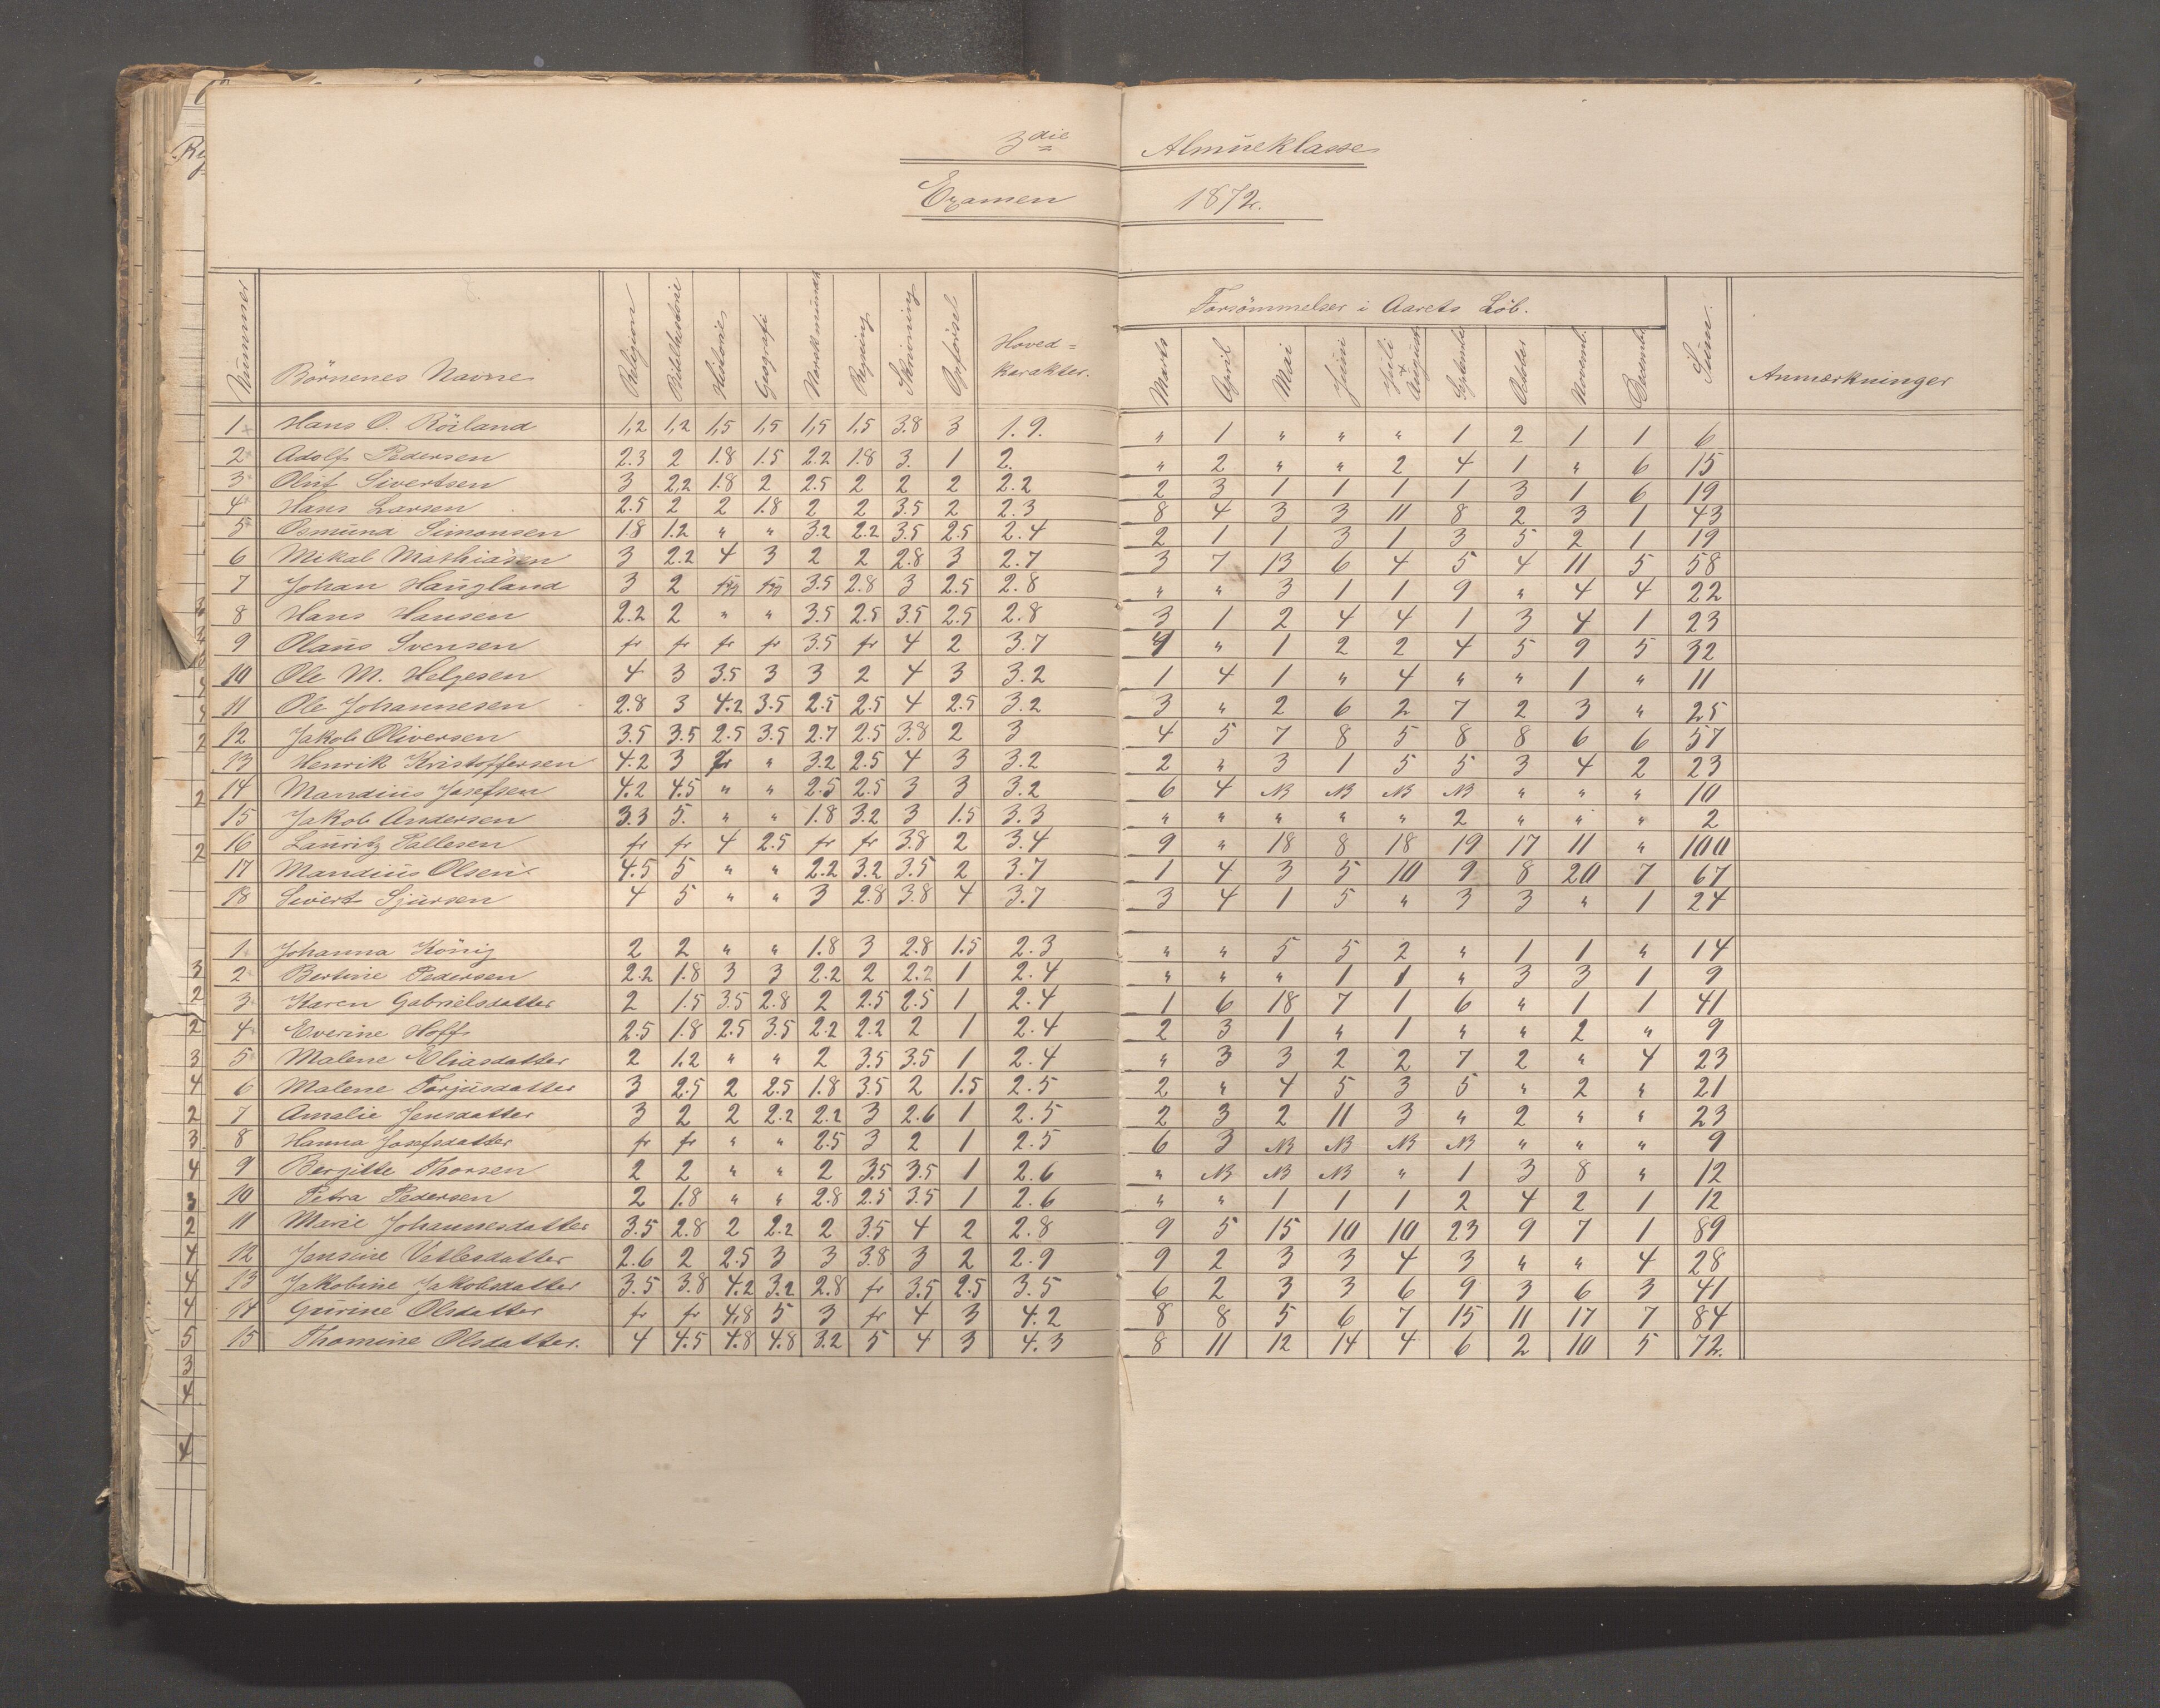 3die Almueklasse
Examen 1872.
Nummer Börnenes Navne Religion Bibelhistorie Historie Geografi Regning Skrivning Opförsel Hoved= karakter. Forsömmelser i Aarets Löb. Marts April Mai Juni Juli & August Septembr October Novemb. Decembr Sum. Anmærkninger
1 Hans O. Röiland 1,2 1,2 1,5 1,5 1,5 1,5 3.8 3 1.9. " 1 " " " 1 2 1 1 6
2 Adolf Pedersen 2.3 2 1.8 1.5 2.2 1.8 3. 1 2. " 2 " " 2 4 1 " 6 15
3 Oluf Sivertsen 3 2,2 1.8 2 2.5 2 2 2 2.2 2 3 1 1 1 1 3 1 6 19
4 Hans Larsen 2.5 2 2 1.8 2 2 3.5 2 2.3 8 4 3 3 11 8 2 3 1 43
5 Osmund Simonsen 1.8 1.2 " " 3.2 2.2 3.5 2.5 2.4 2 1 1 3 1 3 5 2 1 19
6 Mikal Mathiasen 3 2.2 4 3 2 2 2.8 3 2.7 3 7 13 6 4 5 4 11 5 58
7 Johan Haugland 3 2 3.5 2.8 3 2.5 2.8 " " 3 1 1 9 " 4 4 22
8 Hans Hansen 2.2 2 " " 3.5 2.5 3.5 2.5 2.8 3 1 2 4 4 1 3 4 1 23
9 Olaus Svensen fr fr fr fr 3.5 fr 4 2 3.7 4 " 1 2 2 4 5 9 5 32
10 Ole M. Helgesen 4 3 3.5 3 3 2 4 3 3.2 1 4 1 " 4 " " 1 " 11
11 Ole Johannesen 2.8 3 4.2 3.5 2.5 2.5 4 2.5 3.2 3 " 2 6 2 7 2 3 " 25
12 Jakob Oliversen 3.5 3.5 2.5 3.5 2.7 2.5 3.8 2 3 4 5 7 8 5 8 8 6 6 57
13 Henrik Kristoffersen 4.2 3 fr " 3.2 2.5 4 3 3.2 2 " 3 1 5 5 3 4 2 23
14 Mandius Josefsen 4.2 4.5 " " 2.5 2.5 3 3 3.2 6 4 NB NB NB NB " " " 10
15 Jakob Andersen 3.3 5. " " 1.8 3.2 3 1.5 3.3 " " " " " 2 " " " 2
16 Lauritz Pallesen fr fr 4 2.5 fr fr 3.8 2 3.4 9 " 18 8 18 19 17 11 " 100
17 Mandius Olsen 4.5 5 " " 2.2 3.2 3.5 2 3.7 1 4 3 5 10 9 8 20 7 67
18 Sivert Sjursen 4 5 " " 3 2.8 3.8 4 3.7 3 4 1 5 " 3 3 " 1 24
1. Johanna König 2 2 " " 1.8 3 2.8 1.5 2.3 " " 5 5 2 " 1 1 " 14
2 Bertine Pedersen 2.2 1.8 3 3 2.2 2 2.2 1 2.4 " " " 1 1 " 3 3 1 9
3 Karen Gabrielsdatter 2 1.5 3.5 2.8 2 2.5 2.5 1 2.4 1 6 18 7 1 6 " 1 1 41
4 Everine Hoff 2.5 1.8 2.5 3.5 2.2 2.2 2 1 2.4 2 3 1 " 1 " " 2 " 9
5 Malene Eliasdatter 2 1.2 " " 2 3.5 3.5 1 2.4 " 3 3 2 2 7 2 " 4 23
6 Malene Torjusdatter 3 2.5 2 2.5 1.8 3.5 2 1.5 2.5 2 " 4 5 3 5 " 2 " 21
7 Amalie Jensdatter 3 2 2 2.2 2.2 3 2.6 1 2.5 2 3 2 11 3 " 2 " " 23
8 Hanna Josefsdatter fr fr " " 2.5 3 2 1 2.5 6 3 NB NB NB NB " " " 9
9 Bergitte Thorsen 2 2 " " 2 3.5 3.5 1 2.6 " NB NB NB " 1 3 8 " 12
10 Petra Pedersen 2 1.8 " " 2.8 2.5 3.5 1 2.6 " " 1 1 1 2 4 2 1 12
11 Marie Johannesdatter 3.5 2.8 2 2.2 2 3.5 4 2 2.8 9 5 15 10 10 23 9 7 1 89
12 Jensine Vetlesdatter 2.6 2 2.5 3 3 3.8 3 2 2.9 9 2 3 3 4 3 " " 4 28
13 Jakobine Jakobsdatter 3.5 3.8 4.2 3.2 2.8 fr 3.5 2.5 3.5 6 2 3 3 6 9 3 6 3 41
14 Gurine Olsdatter fr fr 4,8 5 3 fr 4 3 4.2 8 8 5 6 7 15 11 17 7 84
15 Thomine Olsdatter. 4 4.5 4.8 4.8 3.2 5 4 3 4.3 8 11 12 14 4 6 2 10 5 72.